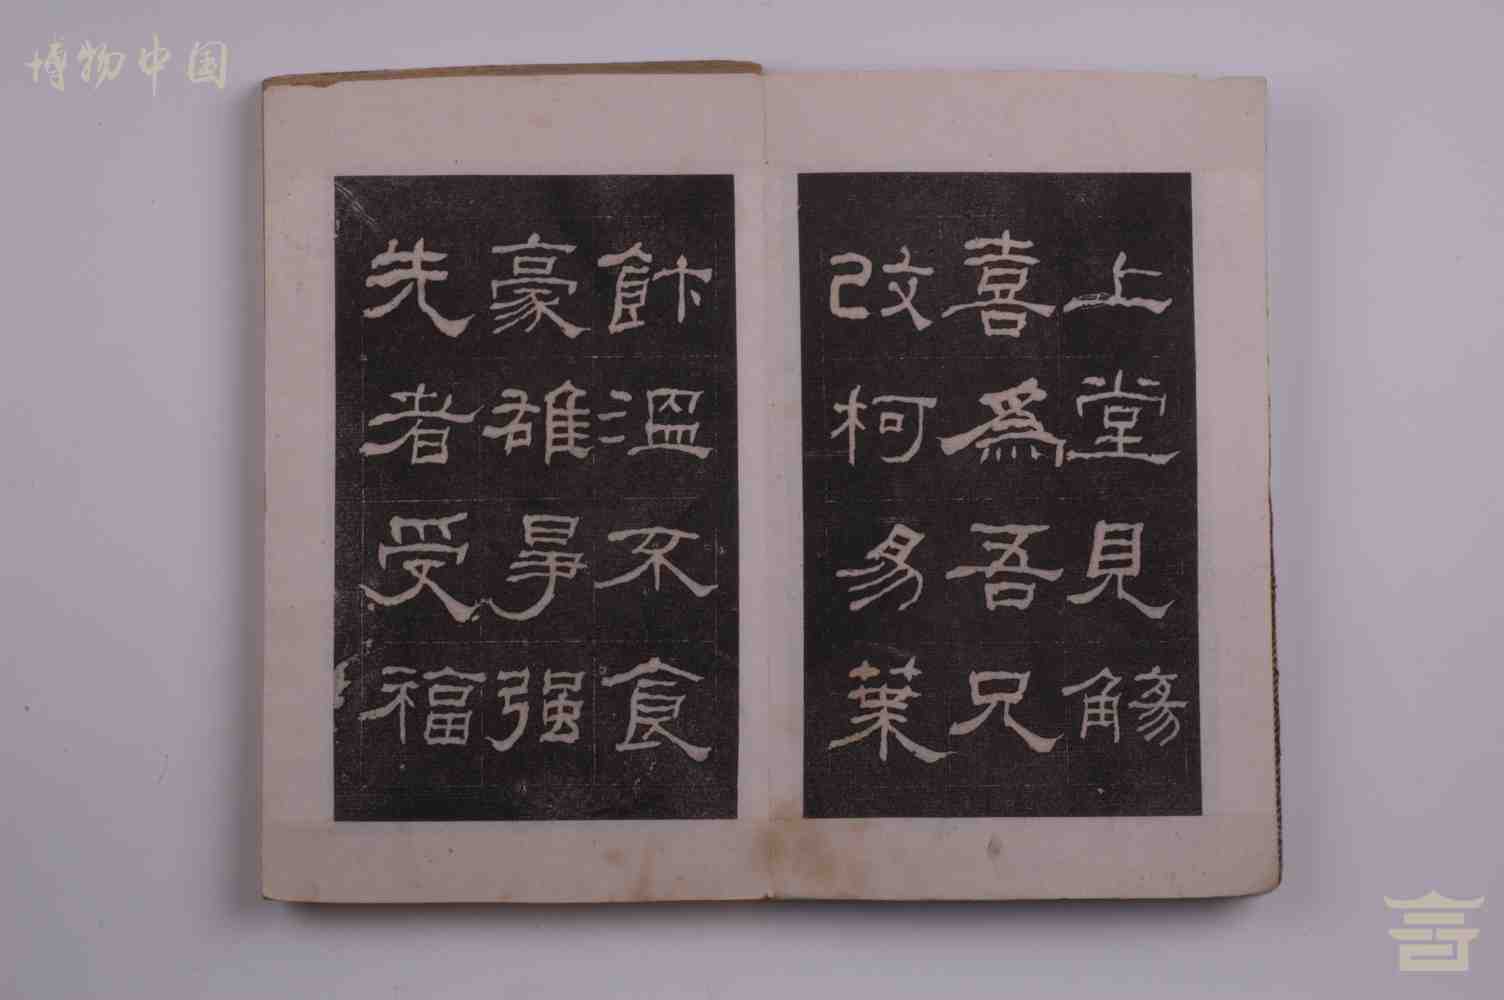 博物中国
上堂見觴
喜爲吾兄
改柯易葉
飰溫不食
豪雄爭强
先者受福